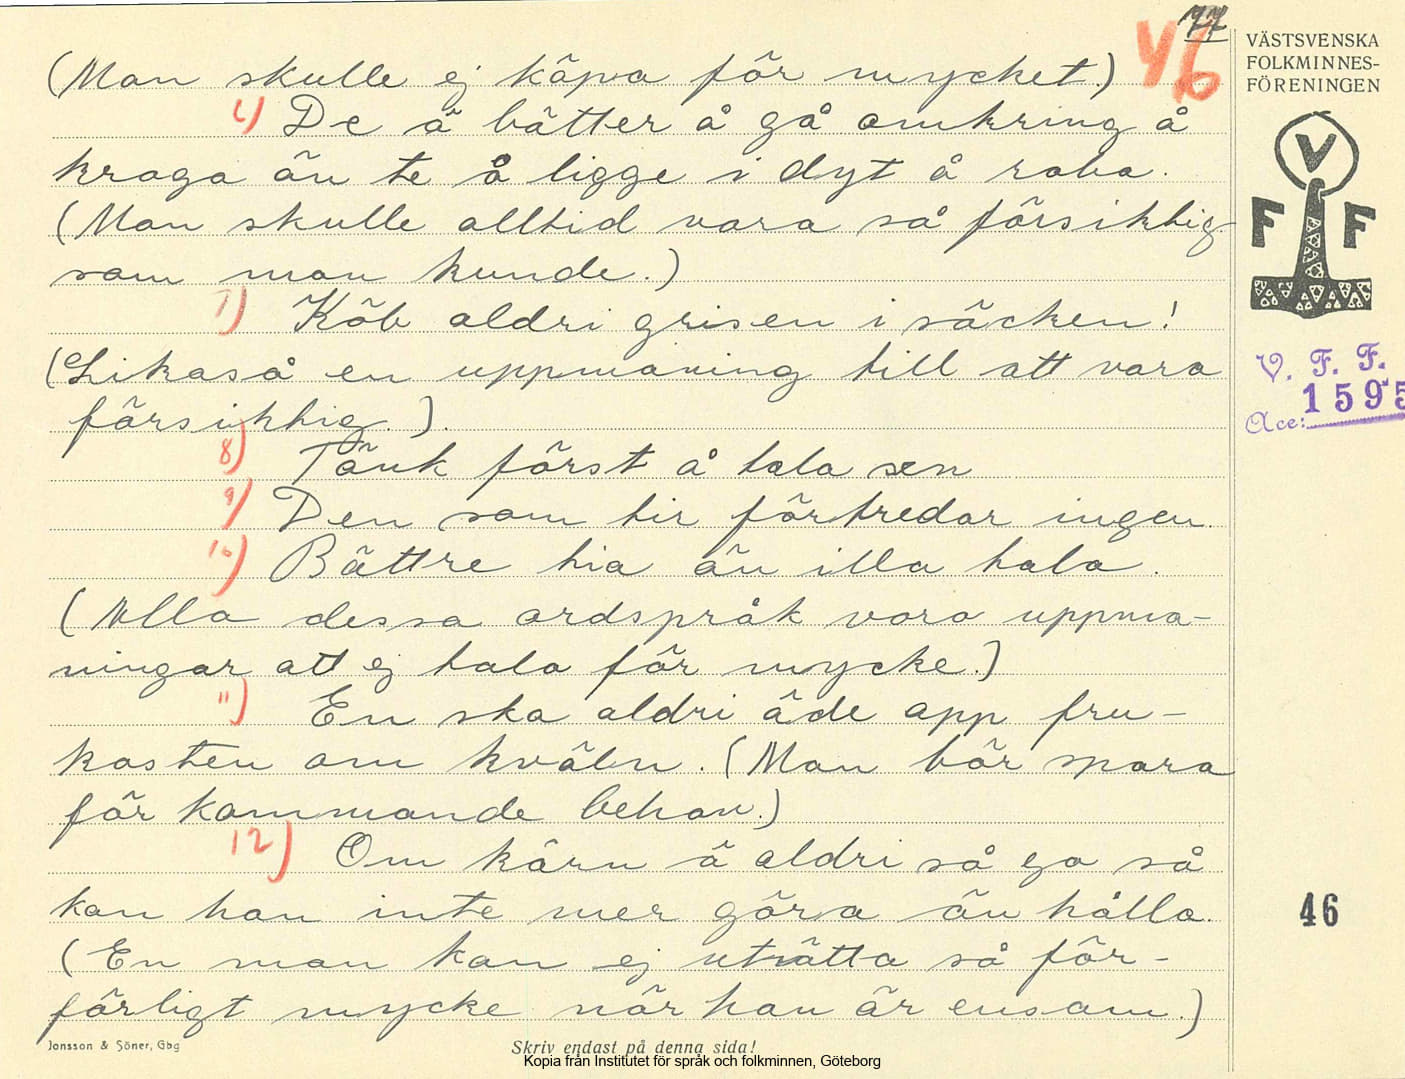 77
46
VÄSTSVENSKA
FOLKMINNES-
FÖRENINGEN
(Man skulle ej köpa för mycket)
6) De ä bätter å gå omkring å
kraga än te å ligge i dyt å raba.
(Man skulle alltid vara så försiktig
som man kunde.)
7) Köb aldri grisen i säcken!
(Likaså en uppmaning till att vara
försiktig.)
8) Tänk först å tala sen
9) Den som tir förtredar ingen.
10) Bättre tia än illa tala.
(Alla dessa ordspråk voro uppma-
ningar att ej tala för mycke.)
11) En ska aldri äde app fru-
kosten om kväln. (Man bör spara
för kommande behov.)
12) Om kärn ä aldri så go så
kan han inte mer göra än hålla.
(En man kan ej uträtta så för-
färligt mycke när han är ensam.)
V
F F
V. F. F.
1595
Acc:
46
Jonsson & Söner, Gbg
Skriv endast på denna sida!
Kopia från Institutet för språk och folkminnen, Göteborg